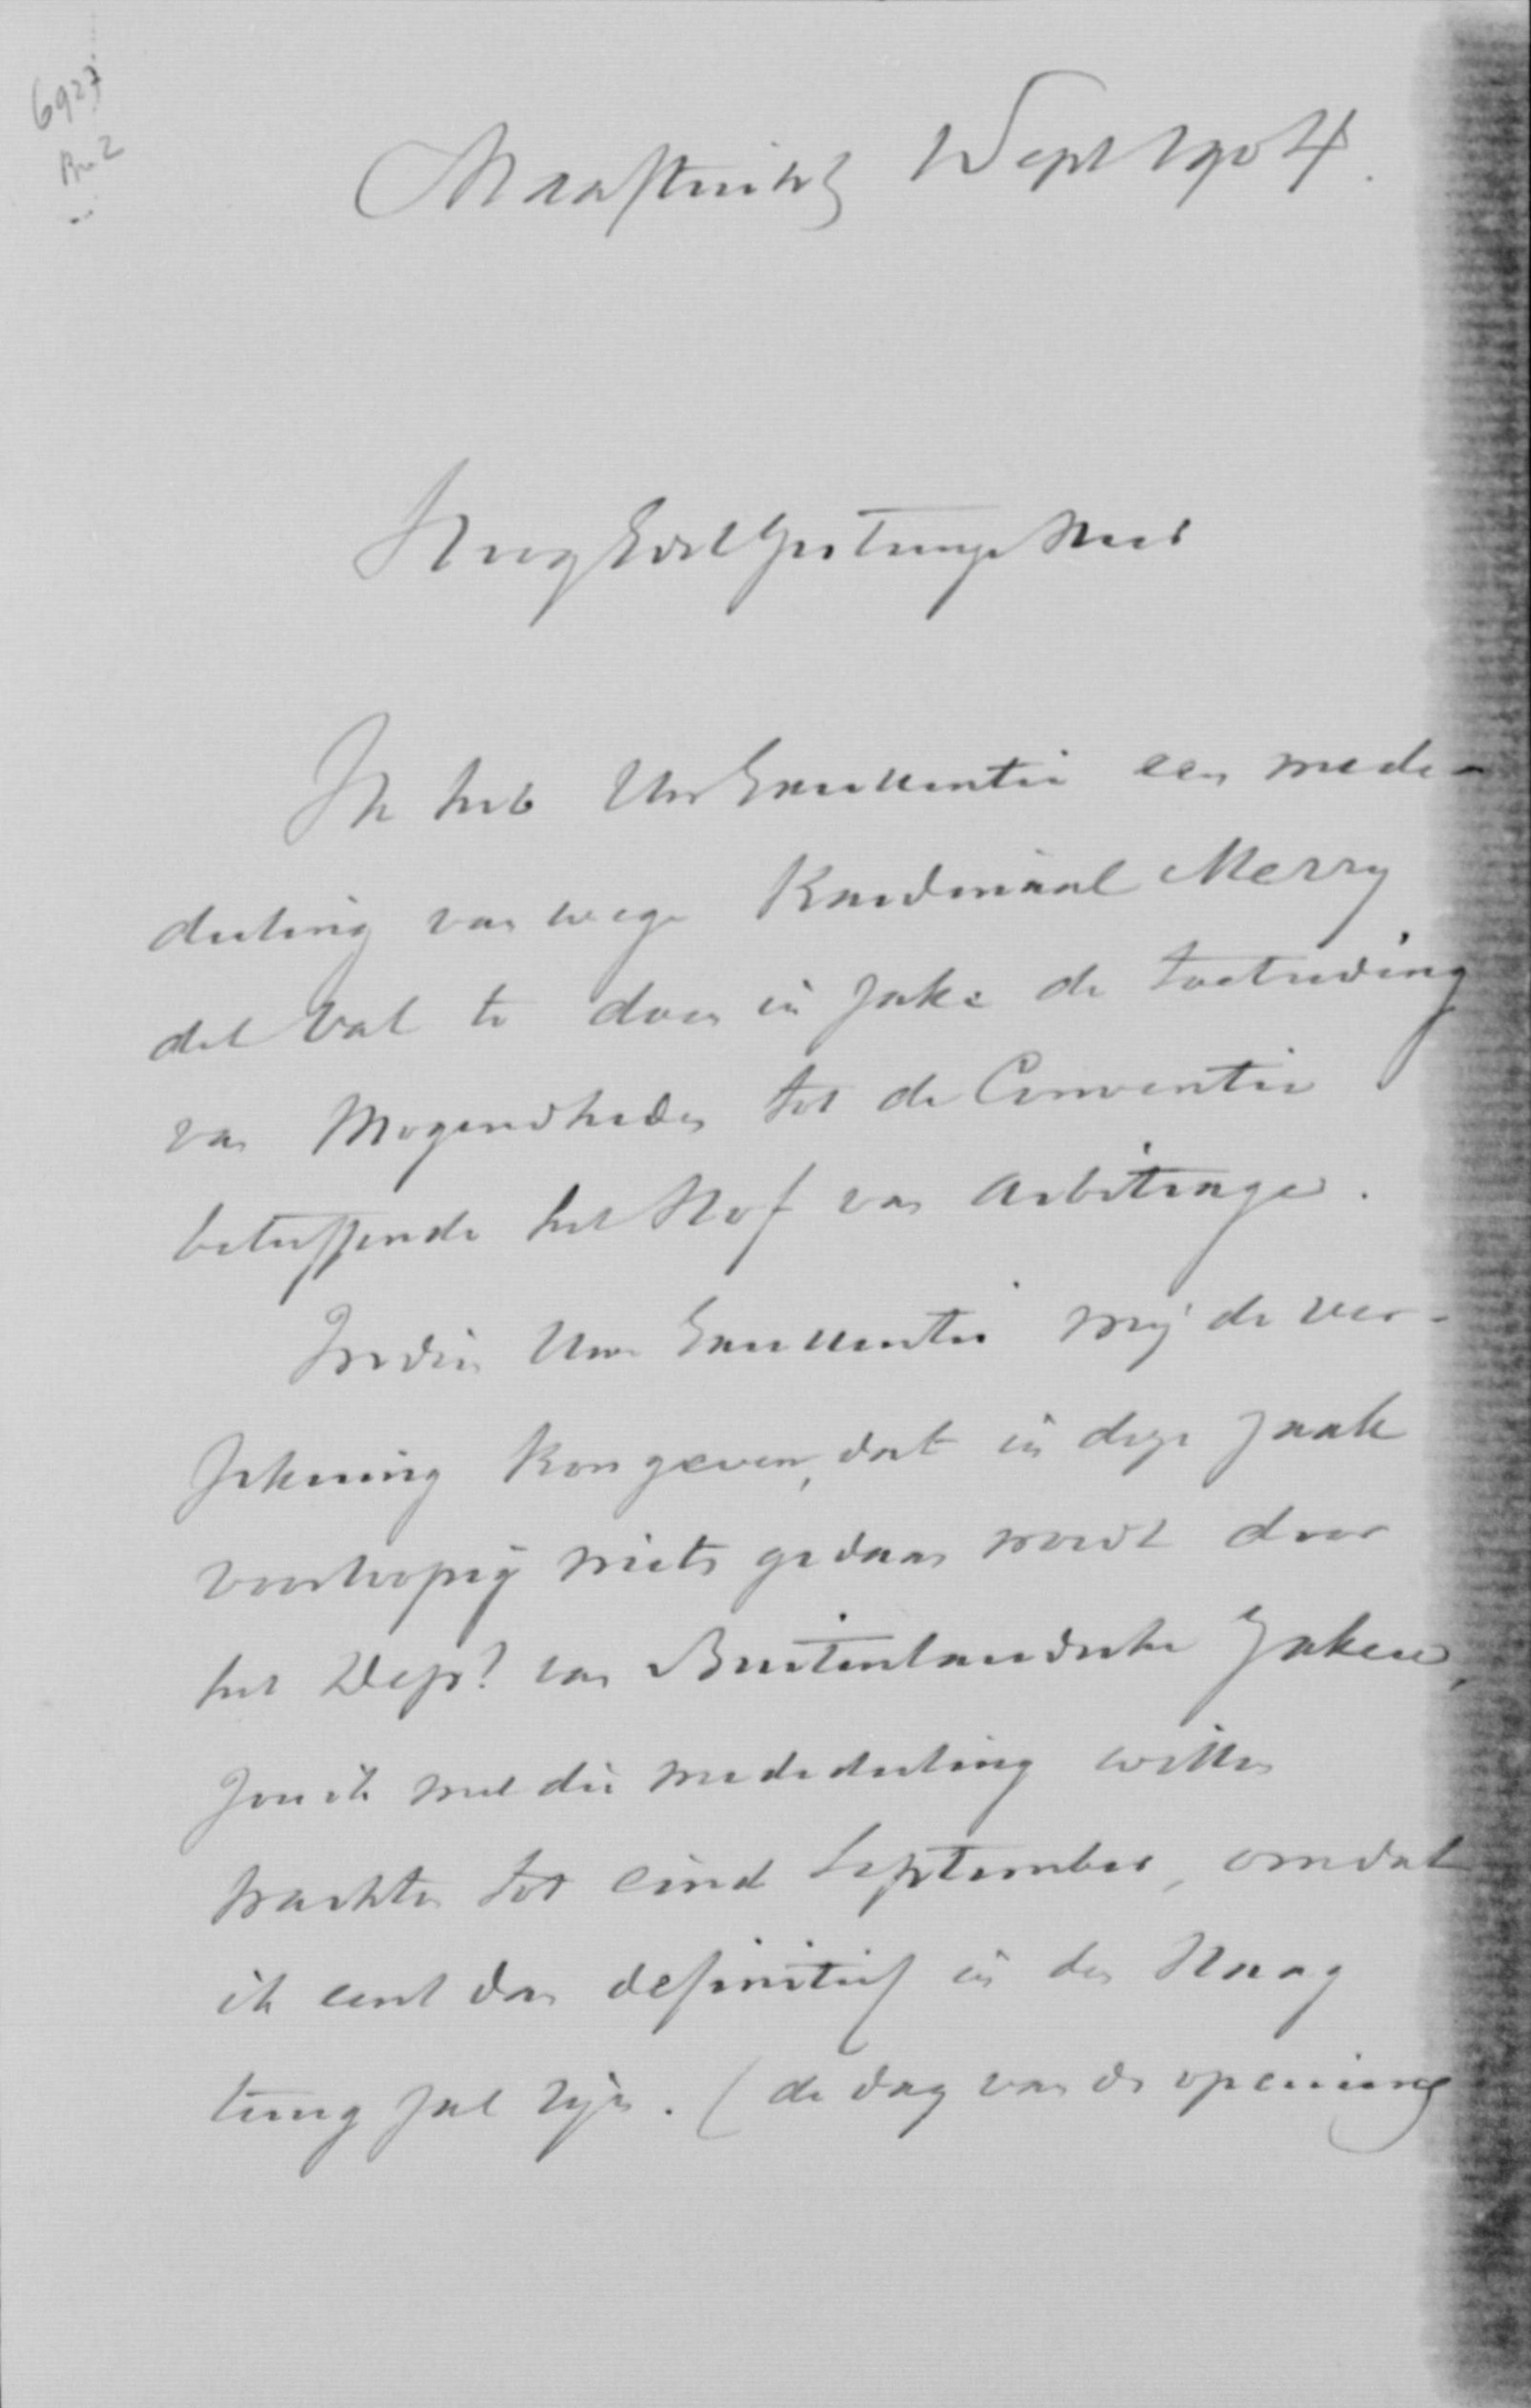 6927
Maastricht 1 Sept 1904.
HoogEdelGestrenge Heer
Ik heb Uw Excellentie een mede-
deeling van wege Kardinaal Merry
del Val te doen in zake de toetreding
van Mogendheden tot de Conventie
betreffende het Hof van Arbitrage.
Indien Uwe Excellentie mij de ver-
zekering kon geven, dat in deze zaak
voorloopig niets gedaan wordt door
het Dept. van Buitenlandsche Zaken,
zou ik met die mededeeling willen
wachten tot eind September, omdat
ik eerst dan definitief in den Haag
terug zal zijn. (de dag van de opening